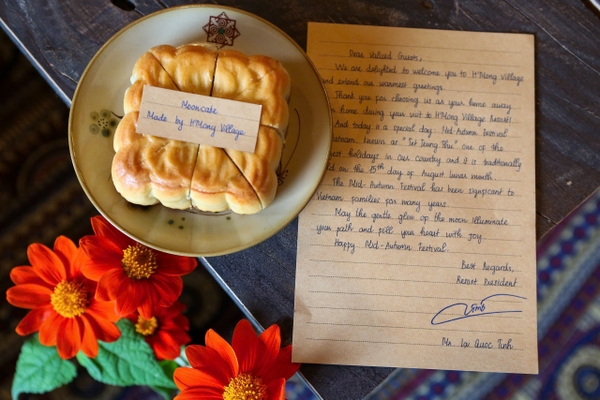 Mooncake
Made by H'Mong Village
Dear Valued Guests,
We are delighted to welcome you to H'Mong Village
and extend our warmest greetings.
Thank you for choosing us as your home away
home during your visit to H'Mong Village Resort!
And today is a special day: Mid-Autumn Festival
Vietnam, known as "Tet Trung Thu" one of the
holidays in our country and it is traditionally
on the 15th day of August lunar month.
The Mid-Autumn Festival has been significant to
Vietnam families for many years.
May the gentle glow of the moon illuminate
your path and fill your heart with joy
Happy Mid-Autumn Festival.
Best Regards,
Resort President
Mr. Lai Quoc Tinh